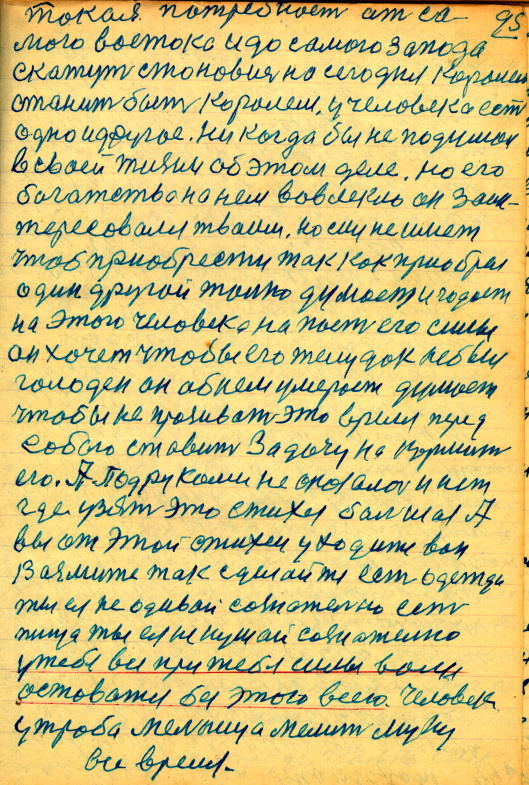 токая потребност от са- 95.
мого востока и до самого запода
скажут становия на сегодня Королем
станит быт Королем, у человека ест
одно и другое. Ни когда бы не подумал
в своей жизни об этом деле. но его
богатства на нем вовлекло он заин-
тересовался твоим. но сил не имеет
чтоб приобрести так как приобрел
один другой толко думает и годает
на этого человека напает его силы
он хочет чтобы его желудок не был
голоден он об нем умерает думает
чтобы не проживат это время перед
собою ставит задачу на кормит
его. А под рукоми не оказалос и нет
где узят это стихея болшая А
вы от этой стихеи уходите вон
Возмите так сделайти ест одежда
ты ея не одивай сознателно ест
пища ты ея не кушай сознателно
у тебя все при тебя силы воли
остоватся бес этого всего. Человек
утроба мелница мелит муку
все время.